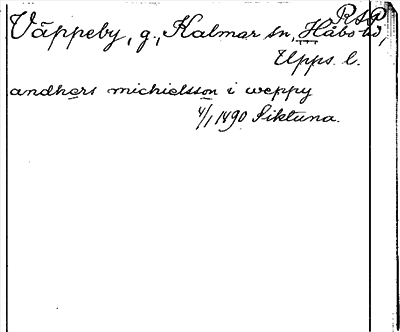 RAP
Väppeby, g., Kalmar sn, Håbo hd,
Upps. l.
andhers michielsson i weppy
4/1 1490 Siktuna.